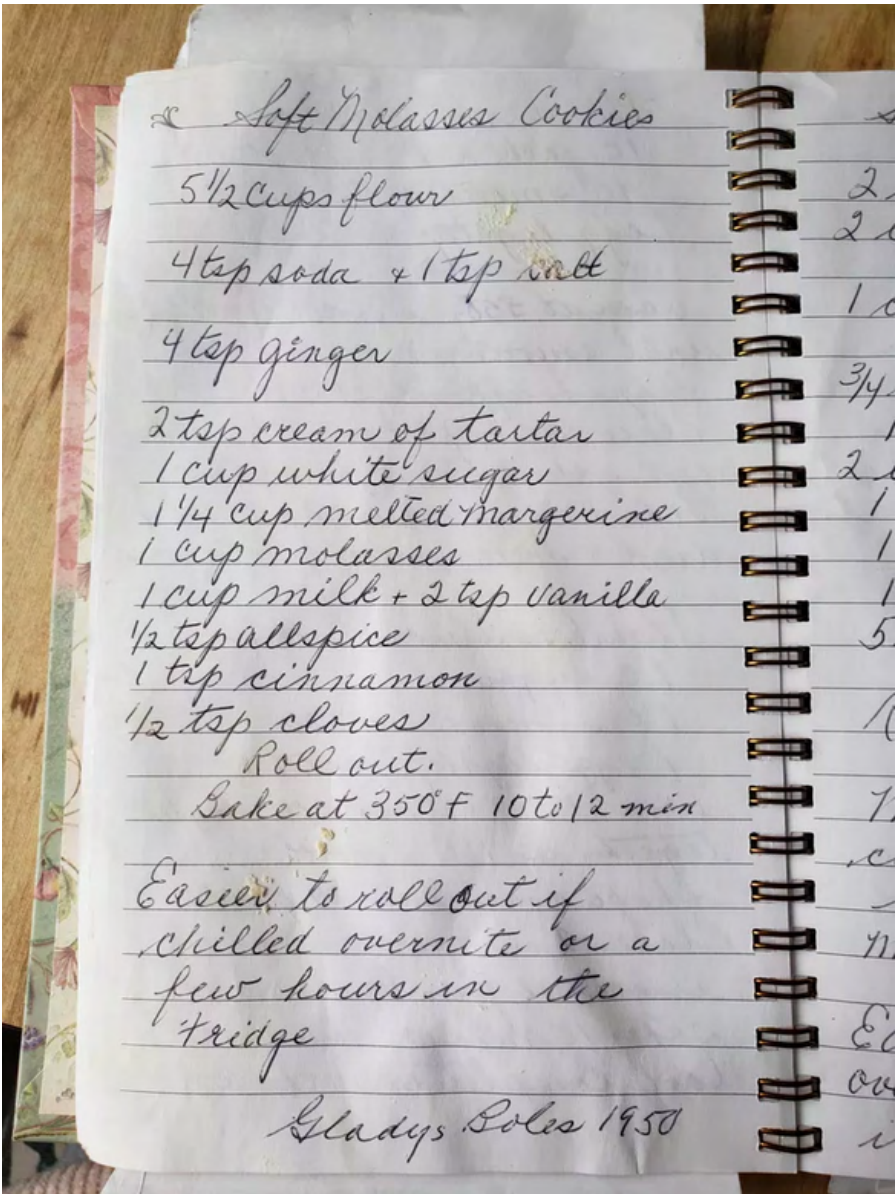 Soft Molasses Cookies
5 1/2 cups flour
4 tsp soda + 1 tsp salt
4 tsp ginger
2 tsp cream of tartar
1 cup white sugar
1 1/4 cup melted margerine
1 cup molasses
1 cup milk + 2 tsp vanilla
1/2 tsp allspice
1 tsp cinnamon
1/2 tsp cloves
Roll out.
Bake at 350°F 10 to 12 min
Easier to roll out if
chilled overnite or a
few hours in the
fridge
Gladys Boles 1950
2
2
1
3/4
1
2
1
1
1
5